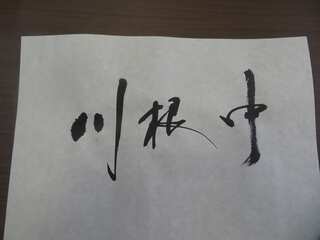 川根中